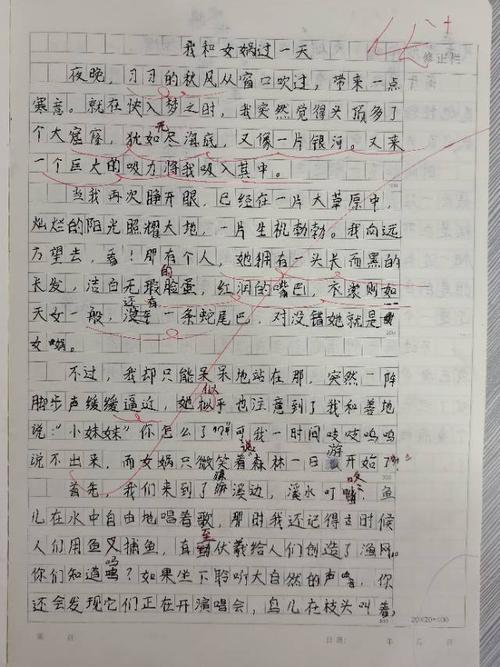 我和女娲过一天
修正栏
夜晚，习习的秋风从窗口吹过，带来一点
寒意。就在快入梦之时，我突然觉得头顶多了
个大窟窿，犹如无尽海底，又像一片银河。又来
一个巨大的吸力将我吸入其中。
当我再次睁开眼，已经在一片大草原中，
灿烂的阳光照耀大地，一片生机勃勃。我向远
方望去，看！那有个人，她拥有一头长而黑的
长发，洁白无瑕的脸蛋，红润的嘴巴，衣裳则如
天女一般，还有一条蛇尾巴，对没错她就是
女娲。
不过，我却只能呆呆地站在那，突然一阵
脚步声缓缓逼近，她似乎也注意到了我和善地
说："小妹妹"你怎么了？可我一时间吱吱呜呜
说不出来，而女娲只微笑着说森林一日游开始了
首先，我们来到了溪边，溪水叮咚，鱼
儿在水中自由地唱着歌，那时我还记得古时候
人们用鱼叉捕鱼，直至伏羲给人们创造了渔网
你们知道吗？如果坐下聆听大自然的声音，你
还会发现它们正在开演唱会，鸟儿在枝头叫着，
20×20=400
第 页
日期： 年 月